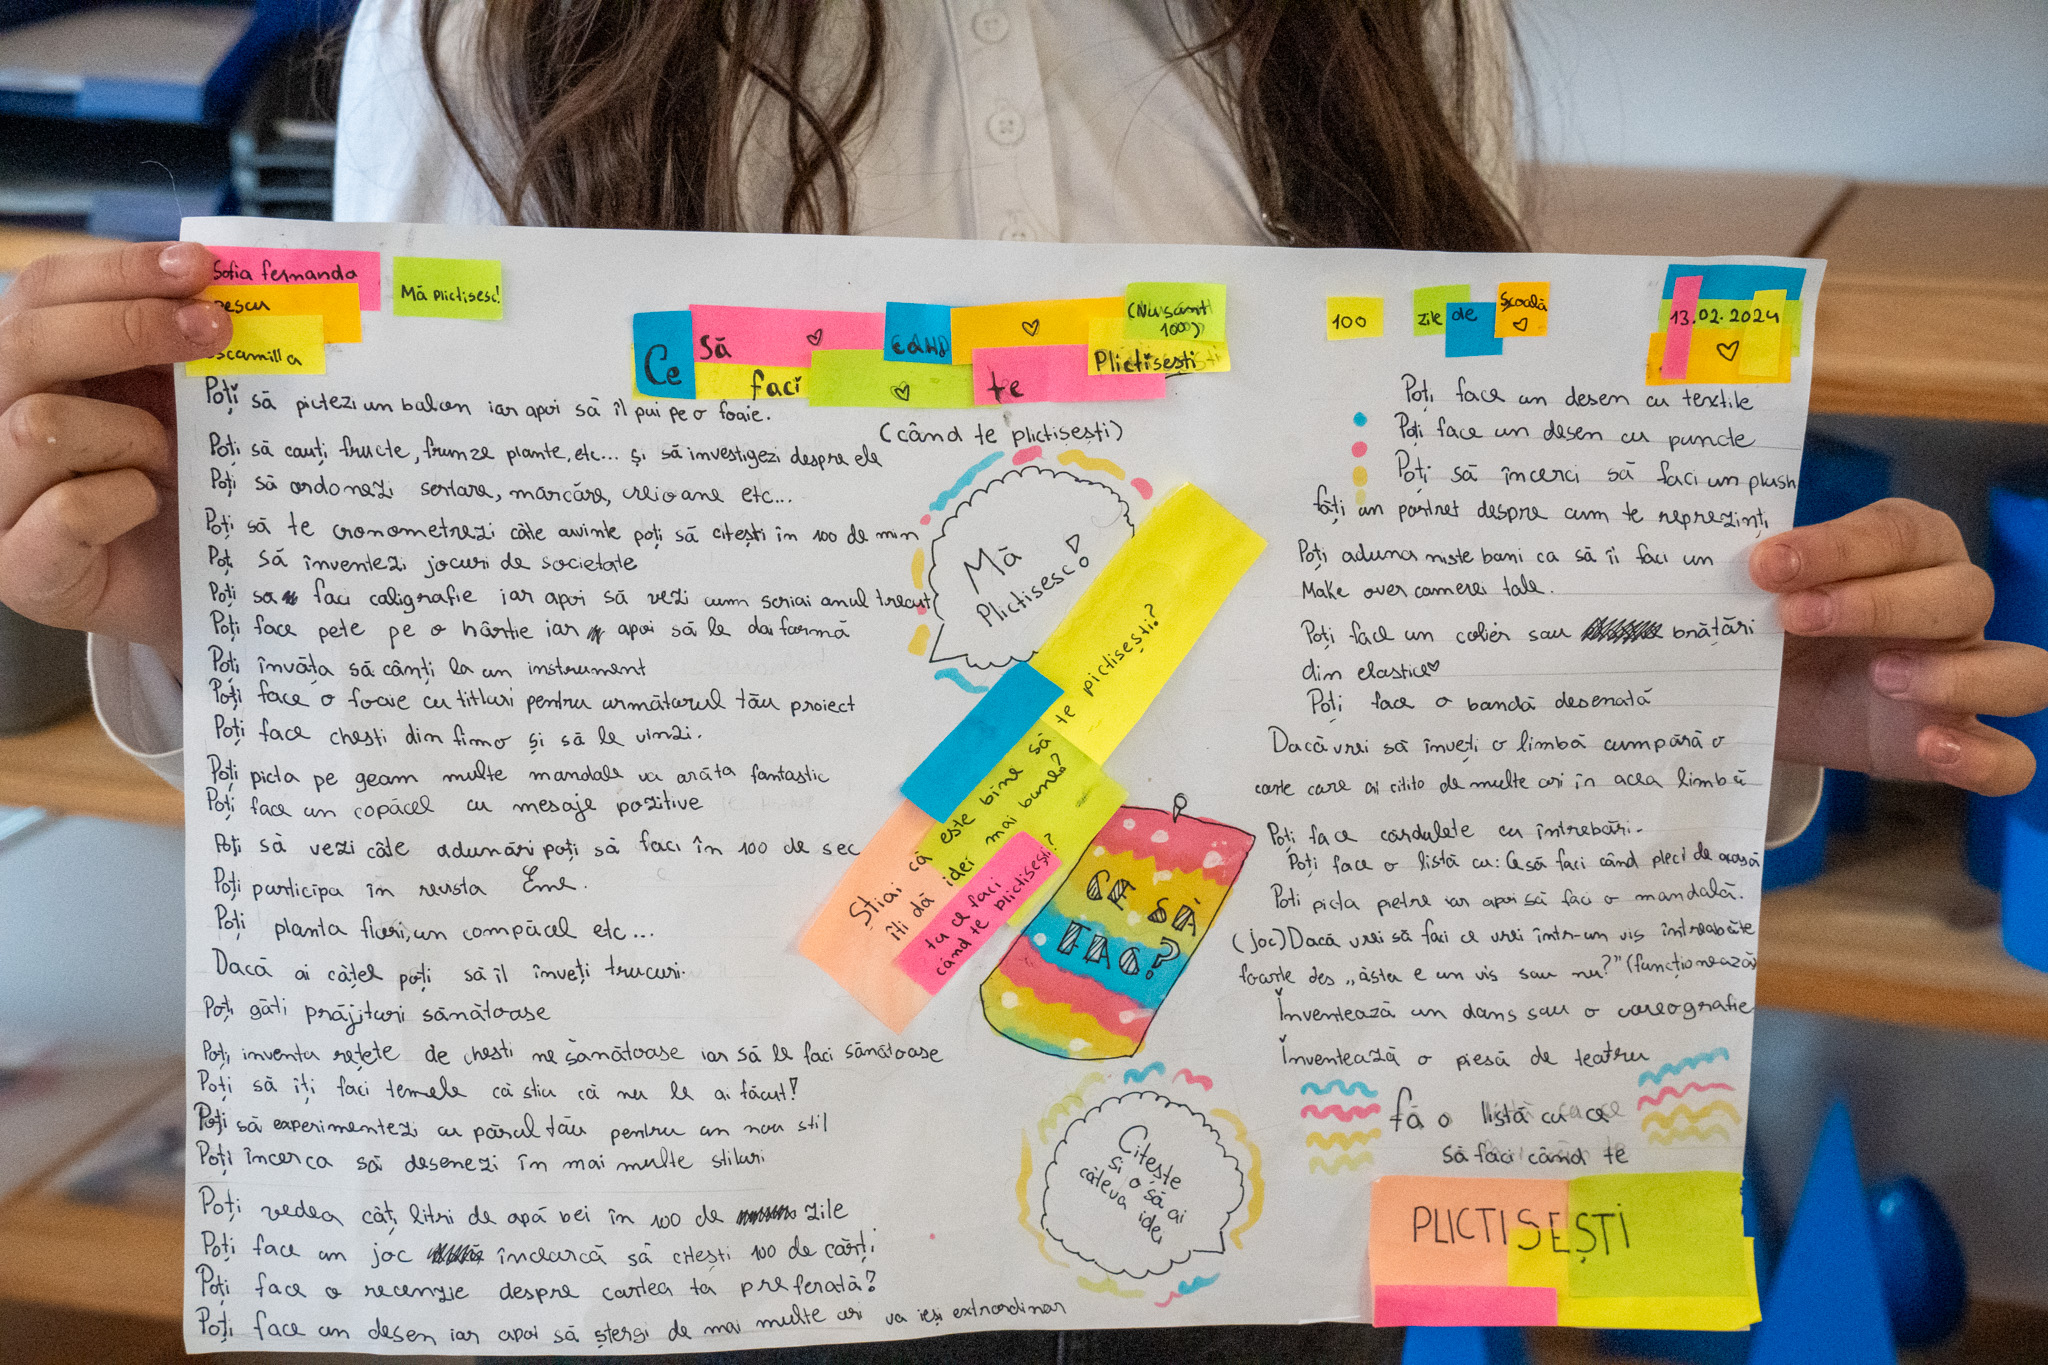 Sofia fernanda
escu
scamilla
Mă plictisesc!
Ce să faci când te Plictisești
(Nu sânt 100%)
100 zile de școală
13.02.2024
(când te plictisești)
Poți să pictezi un balcon iar apoi să îl pui pe o foaie.
Poți să cauți fructe, frunze plante, etc... și să investigezi despre ele
Poți să ordonezi sertare, mărcăre, creioane etc...
Poți să te cronometrezi câte cuvinte poți să citești în 100 de min
Poți să inventezi jocuri de societate
Poți sa faci caligrafie iar apoi să vezi cum scriai anul trecut
Poți face pete pe o hârtie iar apoi să le dai formă
Poți învăța să cânți la un instrument
Poți face o foaie cu titluri pentru următorul tău proiect
Poți face chesti din fimo și să le vinzi.
Poți picta pe geam multe mandale va arăta fantastic
Poți face un copăcel cu mesaje pozitive
Poți să vezi câte adunări poți să faci în 100 de sec
Poți participa în revista Eme.
Poți planta flori, un compăcel etc...
Dacă ai cățel poți să îl înveți trucuri.
Poți găti prăjituri sănătoase
Poți inventa rețete de chesti ne sanătoase iar să le faci sănătoase
Poți să îți faci temele că știu că nu le ai făcut!
Poți să experimentezi cu părul tău pentru un nou stil
Poți încerca să desenezi în mai multe stiluri
Poți vedea câț litri de apă bei în 100 de zile
Poți face un joc încearcă să citești 100 de cărți
Poți face o recenzie despre cartea ta preferată?
Poți face un desen iar apoi să ștergi de mai multe ori va ieși extrordinar
Mă
Plictisesc!
Știai că este bine să te plictisești?
Îți dă idei mai bune?
tu ce faci
când te plictisești?
CA SĂ
FAC?
Citește
și o să ai
câteva idei
Poți face un desen cu textile
Poți face un desen cu puncte
Poți să încerci să faci un plush
făți un portret despre cum te reprezinți
Poți aduna niste bani ca să îi faci un
Make over camerei tale.
Poți face un colier sau brățări
din elastice
Poți face o bandă desenată
Dacă vrei să înveți o limbă cumpără o
carte care ai citito de multe ori în acea limbă
Poți face cărdulețe cu întrebări.
Poți face o listă cu: Ce să faci când pleci de acasă
Poti picta pietre iar apoi să faci o mandală.
(joc) Dacă vrei să faci ce vrei într-un vis întreabăte
foarte des „ăsta e un vis sau nu?" (funcționează)
Înventează un dans sau o coreografie
Înventează o piesă de teatru
fă o listă cu ce
să faci când te
PLICTISEȘTI